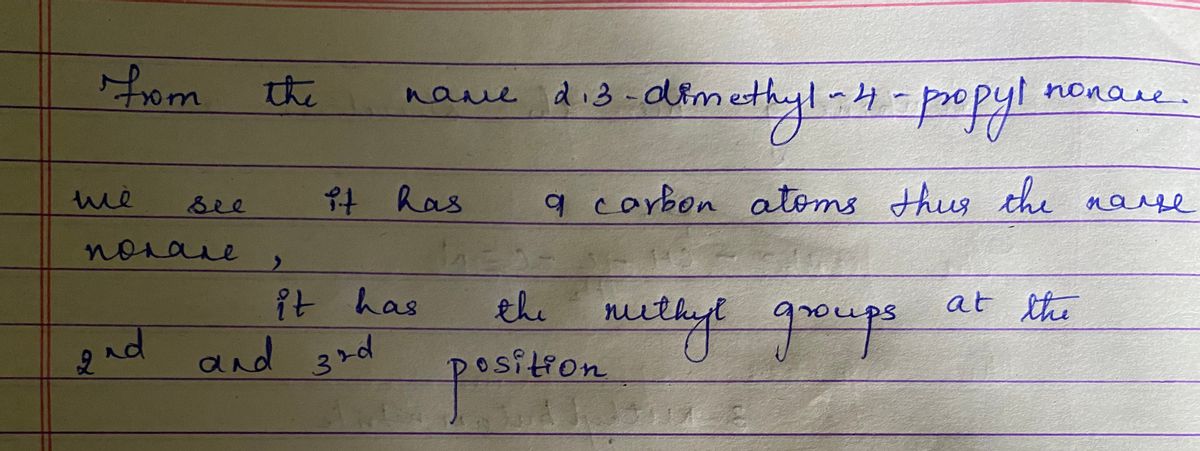 From the name 2,3-dimethyl-4-propyl nonane.
we see it has 9 carbon atoms thus the name
nonane,
it has the methyl groups at the
2nd and 3rd position